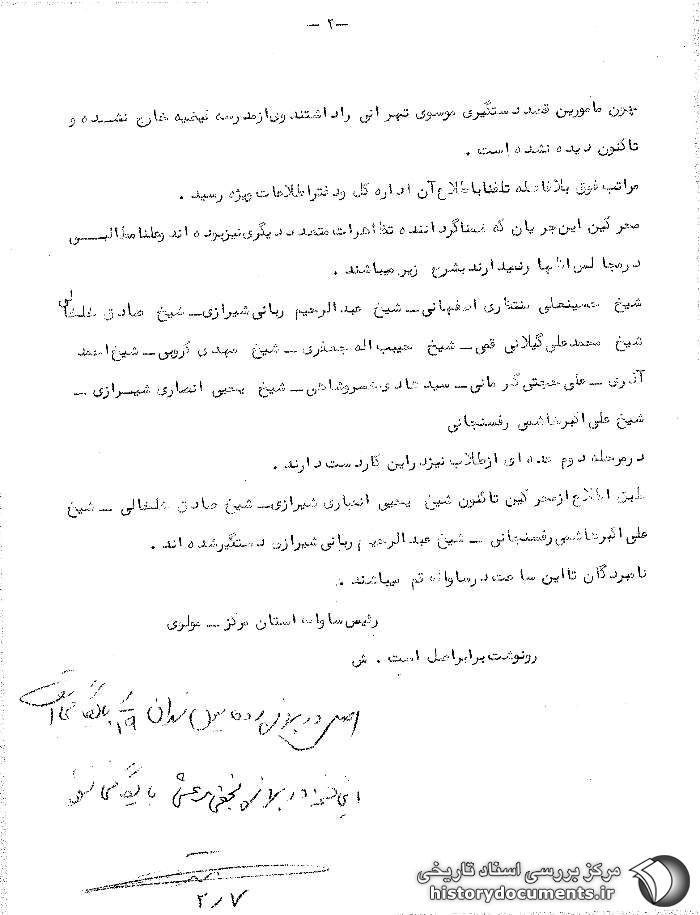 -۲-
چون مأمورین قصد دستگیری موسوی تهرانی را داشتند وی از مدرسه فیضیه خارج نشده و
تاکنون دیده نشده است .
مراتب فوق بلافاصله تلفنا باطلاع آن اداره کل و دفتر اطلاعات ویژه رسید .
محرکین این جریان که گرداننده تظاهرات متعدد دیگری نیز بوده اند و علنا مطالبی
در مجالس اظهار میدارند بشرح زیر میباشند .
شیخ حسینعلی منتظری اصفهانی ــ شیخ عبدالرحیم ربانی شیرازی ــ شیخ صادق خلخالی
شیخ محمدعلی گیلانی قمی ــ شیخ حبیب اله جعفری ــ شیخ مهدی کروبی ــ شیخ احمد
آذری ــ علی حجتی کرمانی ــ سید هادی خسروشاهی ــ شیخ یحیی انصاری شیرازی ــ
شیخ علی اکبر هاشمی رفسنجانی
در مرحله دوم عده ای از طلاب نیز در این کار دست دارند .
طبق اطلاع از محرکین تاکنون شیخ یحیی انصاری شیرازی ــ شیخ صادق خلخالی ــ شیخ
علی اکبر هاشمی رفسنجانی ــ شیخ عبدالرحیم ربانی شیرازی دستگیر شده اند .
نامبردگان تا این ساعت در ساواک قم میباشند .
رئیس ساواک استان مرکز ــ مولوی
رونوشت برابر اصل است . ش
اصل در پرونده
این نسخه در پرونده نجفی مرعشی بایگانی شود
۲/۷
مرکز بررسی اسناد تاریخی
historydocuments.ir